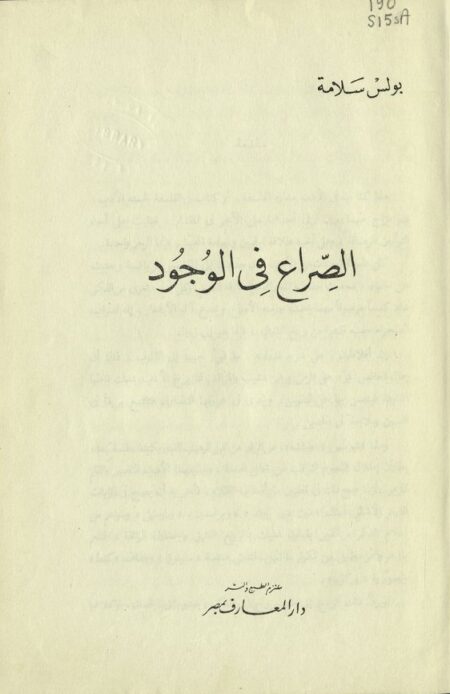 190
S15sA
بولس سَلامة
الصِّراع فِي الوُجُود
ملتزم الطبع والنشر
دار المعارف بمصر